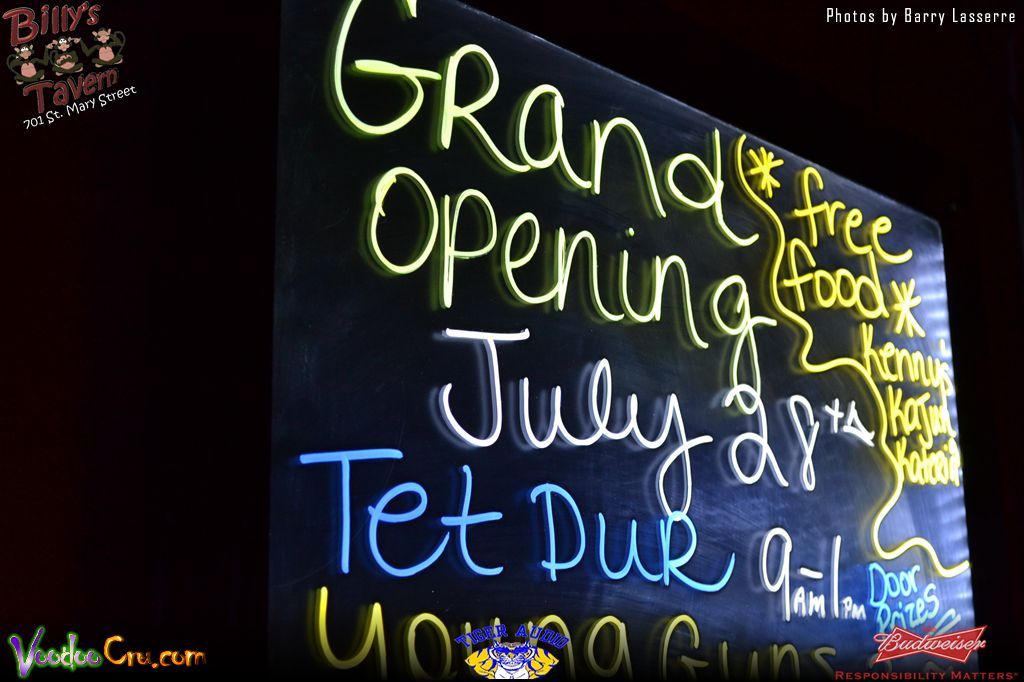 Billy's
Tavern
701 St. Mary Street
Photos by Barry Lasserre
Grand
Opening
July 28th
Tet Dur 9AM-1PM
Young Guns
* free
food *
Kenny's
Kajun
Katerin
Door
Prizes
VoodooCru.com
TIGER AUDIO
Budweiser
RESPONSIBILITY MATTERS®